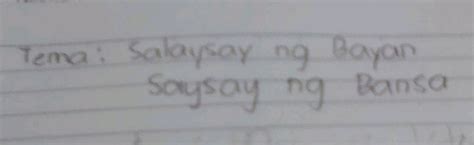 Tema: Salaysay ng Bayan
Saysay ng Bansa